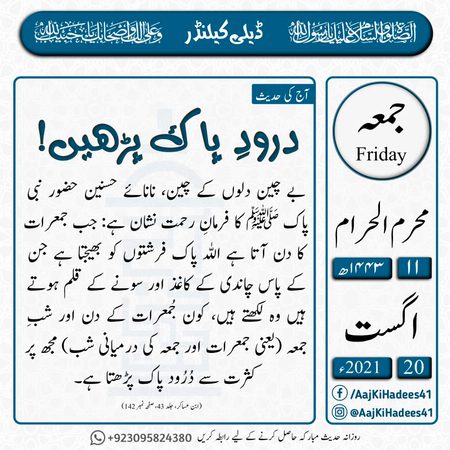 الصلوٰۃ والسلام علیک یا رسول اللہ
ڈیلی کیلنڈر
وعلیٰ آلک واصحابک یا حبیب اللہ
آج کی حدیث
درودِ پاک پڑھیں!
بے چین دلوں کے چین، نانائے حسنین حضور نبی
پاک ﷺ کا فرمانِ رحمت نشان ہے: جب جمعرات
کا دن آتا ہے اللہ پاک فرشتوں کو بھیجتا ہے جن
کے پاس چاندی کے کاغذ اور سونے کے قلم ہوتے
ہیں وہ لکھتے ہیں، کون جُمعرات کے دن اور شبِ
جمعہ (یعنی جمعرات اور جمعہ کی درمیانی شب) مجھ پر
کثرت سے دُرُود پاک پڑھتا ہے۔
(ابن عساکر، جلد 43، صفحہ نمبر 142)
جمعہ
Friday
محرم الحرام
۱۱ ۱۴۴۳ھ
اگست
20 2021ء
/AajKiHadees41
@AajKiHadees41
روزانہ حدیث مبارکہ حاصل کرنے کے لیے رابطہ کریں +923095824380